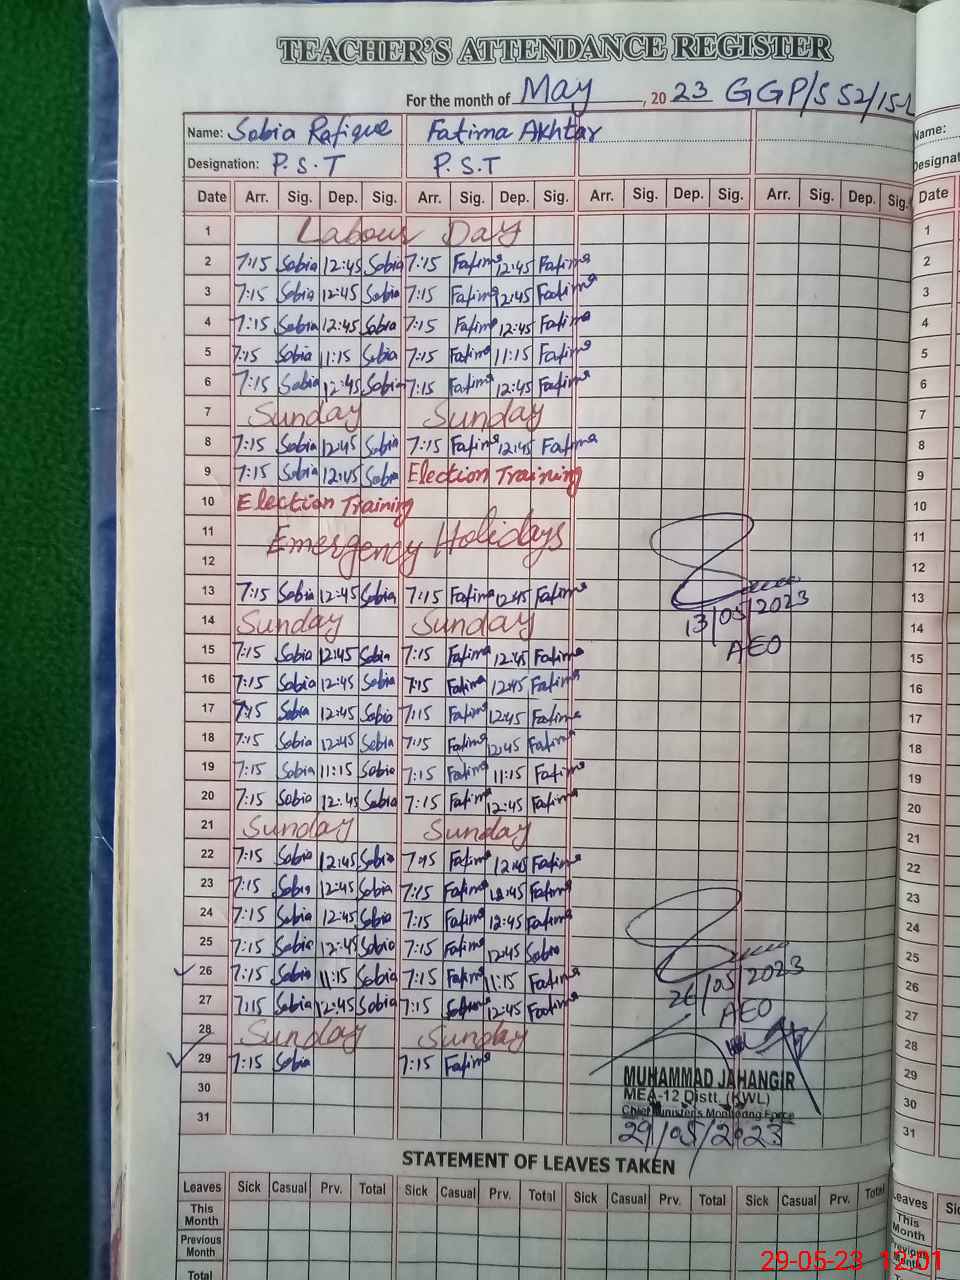 TEACHER'S ATTENDANCE REGISTER
For the month of May, 2023 GGP/S 52/15-L
Name: Sobia Rafique Fatima Akhtar
Designation: P.S.T P.S.T
Date Arr. Sig. Dep. Sig. Arr. Sig. Dep. Sig. Arr. Sig. Dep. Sig. Arr. Sig. Dep. Sig.
1 Labour Day
2 7:15 Sobia 12:45 Sobia 7:15 Fatima 12:45 Fatima
3 7:15 Sobia 12:45 Sobia 7:15 Fatima 12:45 Fatima
4 7:15 Sobia 12:45 Sobia 7:15 Fatima 12:45 Fatima
5 7:15 Sobia 11:15 Sobia 7:15 Fatima 11:15 Fatima
6 7:15 Sobia 12:45 Sobia 7:15 Fatima 12:45 Fatima
7 Sunday Sunday
8 7:15 Sobia 12:45 Sobia 7:15 Fatima 12:45 Fatima
9 7:15 Sobia 12:45 Sobia Election Training
10 Election Training
11 Emergency Holidays
12
13 7:15 Sobia 12:45 Sobia 7:15 Fatima 12:45 Fatima
13/05/2023
14 Sunday Sunday
AEO
15 7:15 Sobia 12:45 Sobia 7:15 Fatima 12:45 Fatima
16 7:15 Sobia 12:45 Sobia 7:15 Fatima 12:45 Fatima
17 7:15 Sobia 12:45 Sobia 7:15 Fatima 12:45 Fatima
18 7:15 Sobia 12:45 Sobia 7:15 Fatima 12:45 Fatima
19 7:15 Sobia 11:15 Sobia 7:15 Fatima 11:15 Fatima
20 7:15 Sobia 12:45 Sobia 7:15 Fatima 12:45 Fatima
21 Sunday Sunday
22 7:15 Sobia 12:45 Sobia 7:15 Fatima 12:45 Fatima
23 7:15 Sobia 12:45 Sobia 7:15 Fatima 12:45 Fatima
24 7:15 Sobia 12:45 Sobia 7:15 Fatima 12:45 Fatima
25 7:15 Sobia 12:45 Sobia 7:15 Fatima 12:45 Sobia
26 7:15 Sobia 11:15 Sobia 7:15 Fatima 11:15 Fatima
26/05/2023
27 7:15 Sobia 12:45 Sobia 7:15 12:45 Fatima
AEO
28 Sunday Sunday
29 7:15 Sobia 7:15 Fatima
MUHAMMAD JAHANGIR
30
MEA-12 Distt. (KWL)
Chief Minister's Monitoring Force
31
29/05/2023
STATEMENT OF LEAVES TAKEN
Leaves Sick Casual Prv. Total Sick Casual Prv. Total Sick Casual Prv. Total Sick Casual Prv. Total
This Month
Previous Month
Total
Name:
Designat
Date
1
2
3
4
5
6
7
8
9
10
11
12
13
14
15
16
17
18
19
20
21
22
23
24
25
26
27
28
29
30
31
Leaves
This Month
Previous Month
29-05-23 12:01